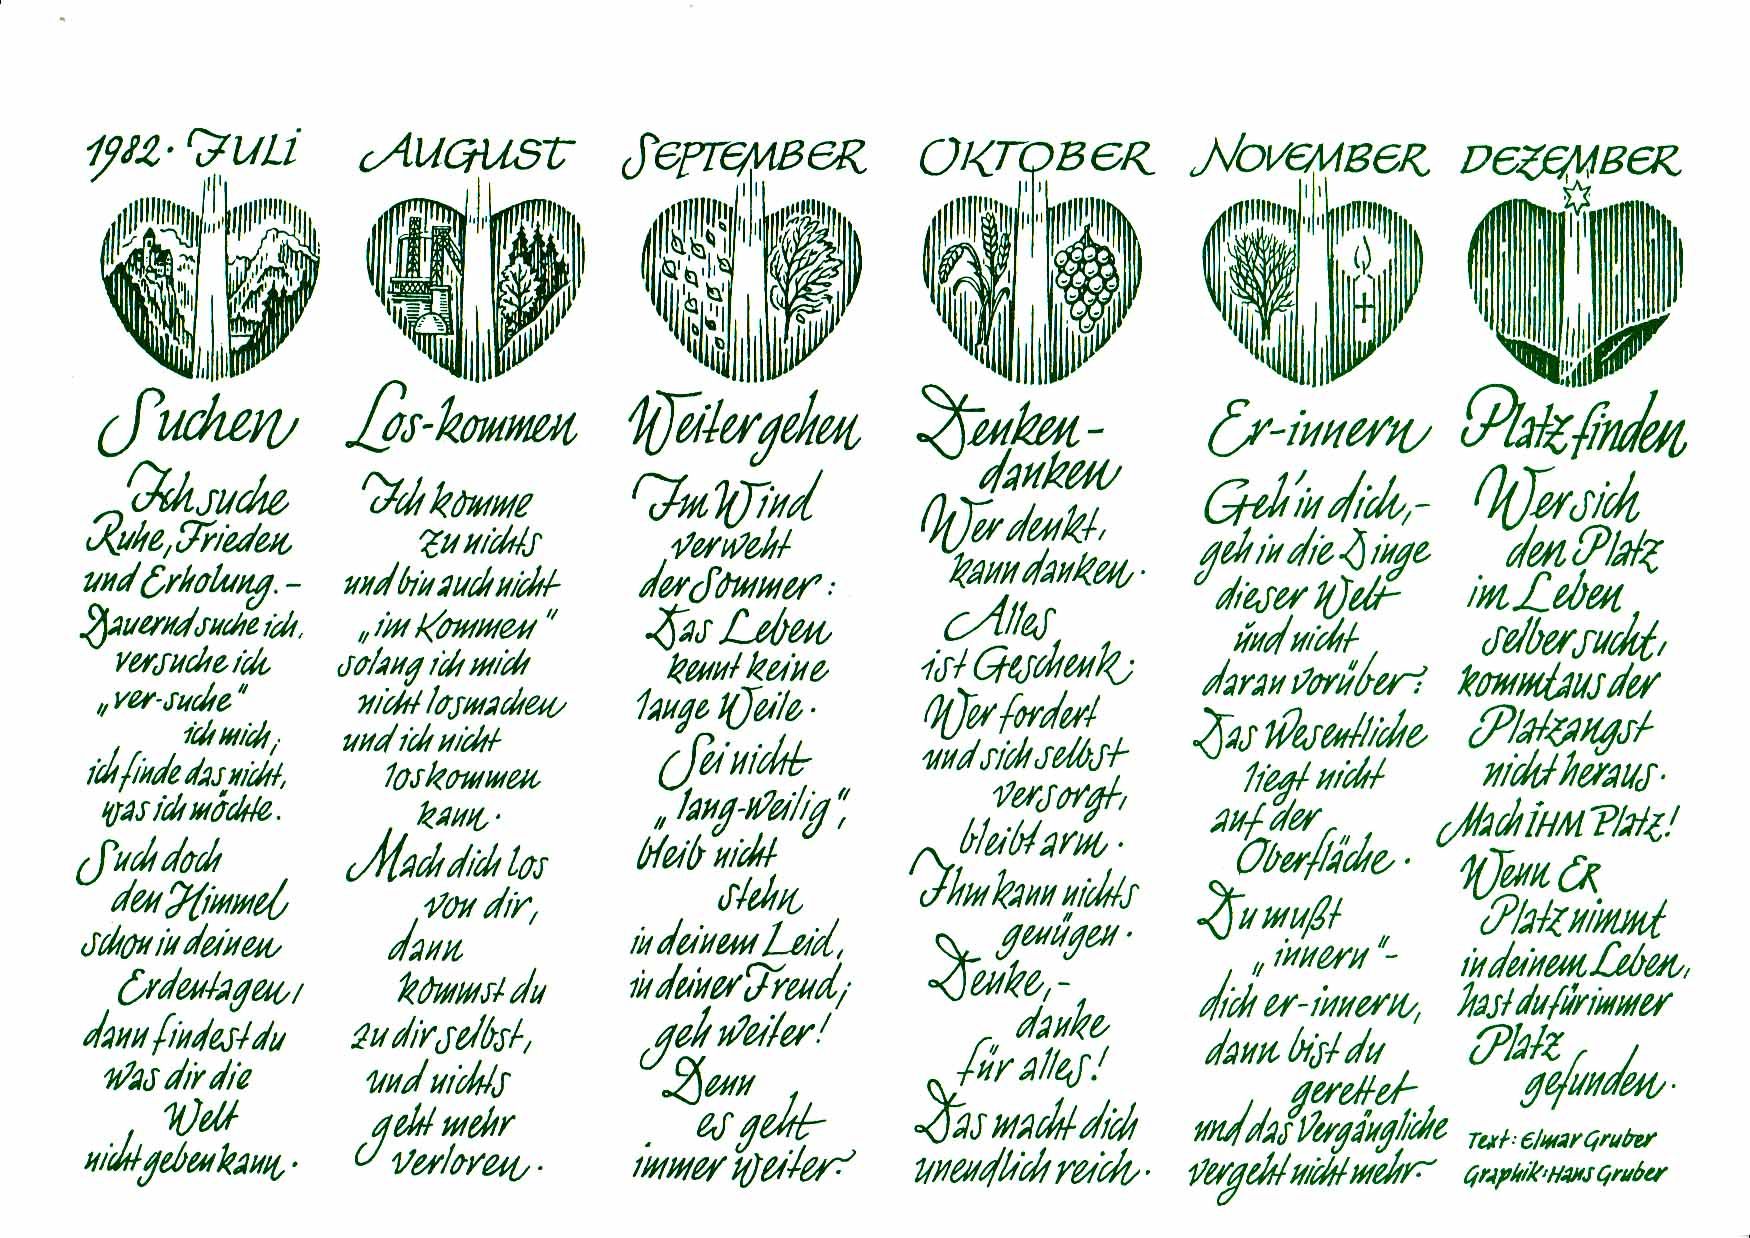 1982 · JULI
Suchen
Ich suche
Ruhe, Frieden
und Erholung. –
Dauernd suche ich,
versuche ich
„ver-suche“
ich mich;
ich finde das nicht,
was ich möchte.
Such doch
den Himmel
schon in deinen
Erdentagen,
dann findest du
was dir die
Welt
nicht geben kann.
AUGUST
Los-kommen
Ich komme
zu nichts
und bin auch nicht
„im Kommen“
solang ich mich
nicht losmachen
und ich nicht
loskommen
kann.
Mach dich los
von dir,
dann
kommst du
zu dir selbst,
und nichts
geht mehr
verloren.
SEPTEMBER
Weitergehen
Im Wind
verweht
der Sommer:
Das Leben
kennt keine
lange Weile.
Sei nicht
„lang-weilig“,
bleib nicht
stehn
in deinem Leid,
in deiner Freud;
geh weiter!
Denn
es geht
immer weiter.
OKTOBER
Denken-
danken
Wer denkt,
kann danken.
Alles
ist Geschenk;
Wer fordert
und sich selbst
versorgt,
bleibt arm.
Ihm kann nichts
genügen.
Denke, –
danke
für alles!
Das macht dich
unendlich reich.
NOVEMBER
Er-innern
Geh' in dich, –
geh in die Dinge
dieser Welt
und nicht
daran vorüber:
Das Wesentliche
liegt nicht
auf der
Oberfläche.
Du mußt
„innern“ –
dich er-innern,
dann bist du
gerettet
und das Vergängliche
vergeht nicht mehr.
DEZEMBER
Platz finden
Wer sich
den Platz
im Leben
selber sucht,
kommt aus der
Platzangst
nicht heraus.
Mach IHM Platz!
Wenn ER
Platz nimmt
in deinem Leben,
hast du für immer
Platz
gefunden.
Text: Elmar Gruber
Graphik: Hans Gruber